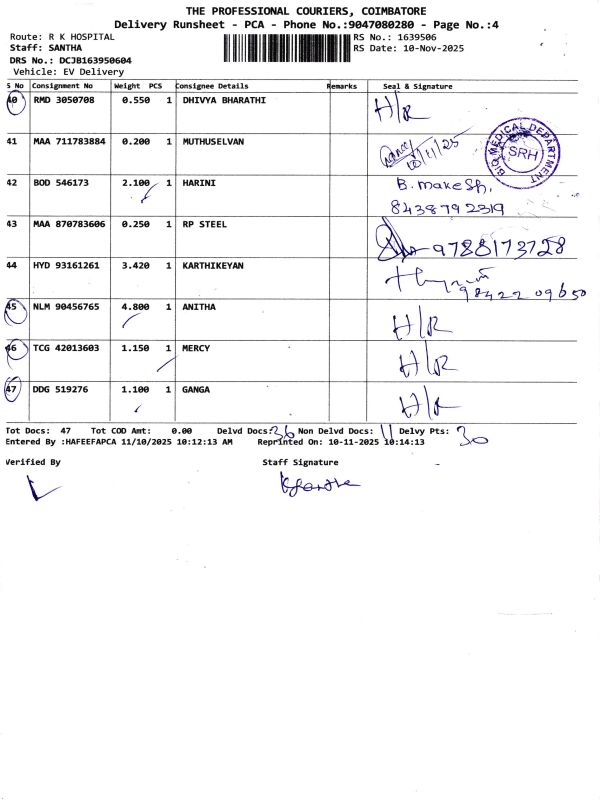 THE PROFESSIONAL COURIERS, COIMBATORE
Delivery Runsheet - PCA - Phone No.:9047080280 - Page No.:4
Route: R K HOSPITAL RS No.: 1639506
Staff: SANTHA RS Date: 10-Nov-2025
DRS No.: DCJB163950604
Vehicle: EV Delivery
S No Consignment No Weight PCS Consignee Details Remarks Seal & Signature
40 RMD 3050708 0.550 1 DHIVYA BHARATHI H/R
41 MAA 711783884 0.200 1 MUTHUSELVAN 10/11/25
BIO MEDICAL DEPARTMENT
SRH
42 BOD 546173 2.100 1 HARINI B. makesh,
8438792319
43 MAA 870783606 0.250 1 RP STEEL 9788173728
44 HYD 93161261 3.420 1 KARTHIKEYAN
98422 09650
45 NLM 90456765 4.800 1 ANITHA H/R
46 TCG 42013603 1.150 1 MERCY H/R
47 DDG 519276 1.100 1 GANGA H/R
Tot Docs: 47 Tot COD Amt: 0.00 Delvd Docs: 36 Non Delvd Docs: 11 Delvy Pts: 30
Entered By :HAFEEFAPCA 11/10/2025 10:12:13 AM Reprinted On: 10-11-2025 10:14:13
Verified By Staff Signature